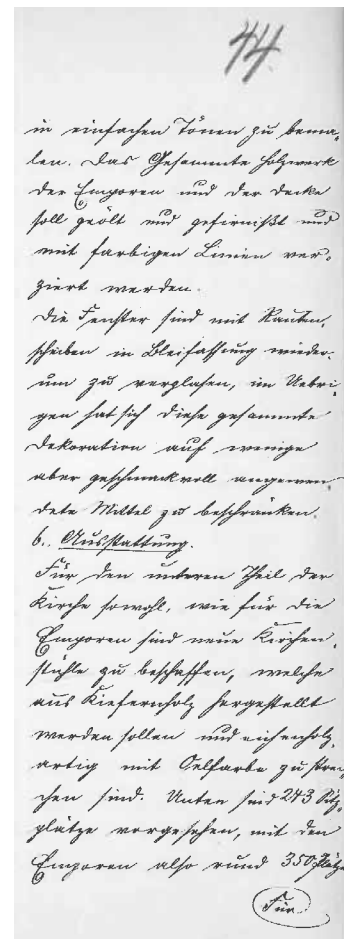 44.
in einfachen Tönen zu bema-
len. Das Gesammte Holzwerk
der Emporen und der Decke
soll geölt und gefirnißt und
mit farbigen Linien ver-
ziert werden.
Die Fenster sind mit Rauten-
scheiben in Bleifassung wieder-
um zu verglasen, im Uebri-
gen hat sich diese gesammte
Dekoration auf wenige
aber geschmackvoll angewen-
dete Mittel zu beschränken.
6. Ausstattung.
Für den unteren Theil der
Kirche sowohl, wie für die
Emporen sind neue Kirchen-
stühle zu beschaffen, welche
aus Kiefernholz hergestellt
werden sollen und eichenholz-
artig mit Oelfarbe zu strei-
chen sind. Unten sind 243 Sitz-
plätze vorgesehen, mit den
Emporen also rund 350 Plätze
Für